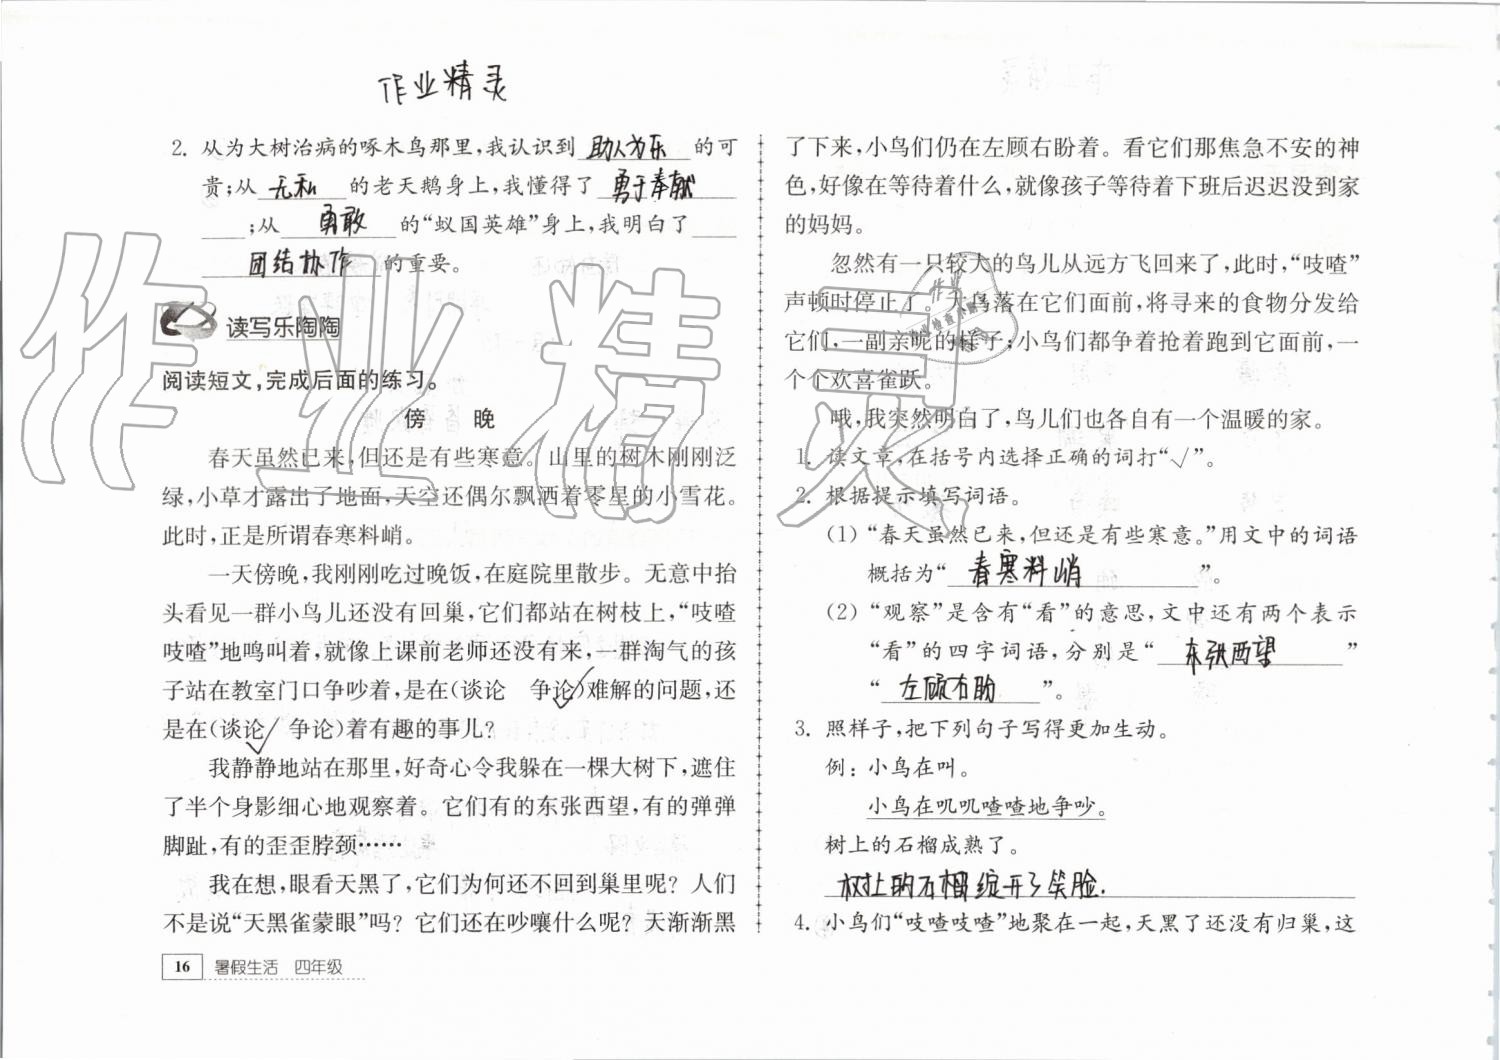 作业精灵
2. 从为大树治病的啄木鸟那里,我认识到 助人为乐 的可
贵;从 无私 的老天鹅身上,我懂得了 勇于奉献
;从 勇敢 的“蚁国英雄”身上,我明白了
团结协作 的重要。
读写乐陶陶
阅读短文,完成后面的练习。
傍 晚
春天虽然已来,但还是有些寒意。山里的树木刚刚泛
绿,小草才露出了地面,天空还偶尔飘洒着零星的小雪花。
此时,正是所谓春寒料峭。
一天傍晚,我刚刚吃过晚饭,在庭院里散步。无意中抬
头看见一群小鸟儿还没有回巢,它们都站在树枝上,“吱喳
吱喳”地鸣叫着,就像上课前老师还没有来,一群淘气的孩
子站在教室门口争吵着,是在(谈论 争论√)难解的问题,还
是在(谈论√ 争论)着有趣的事儿?
我静静地站在那里,好奇心令我躲在一棵大树下,遮住
了半个身影细心地观察着。它们有的东张西望,有的弹弹
脚趾,有的歪歪脖颈……
我在想,眼看天黑了,它们为何还不回到巢里呢? 人们
不是说“天黑雀蒙眼”吗? 它们还在吵嚷什么呢? 天渐渐黑
16 暑假生活 四年级
了下来,小鸟们仍在左顾右盼着。看它们那焦急不安的神
色,好像在等待着什么,就像孩子等待着下班后迟迟没到家
的妈妈。
忽然有一只较大的鸟儿从远方飞回来了,此时,“吱喳”
声顿时停止了。大鸟落在它们面前,将寻来的食物分发给
它们,一副亲昵的样子;小鸟们都争着抢着跑到它面前,一
个个欢喜雀跃。
哦,我突然明白了,鸟儿们也各自有一个温暖的家。
1. 读文章,在括号内选择正确的词打“√”。
2. 根据提示填写词语。
(1) “春天虽然已来,但还是有些寒意。”用文中的词语
概括为“ 春寒料峭 ”。
(2) “观察”是含有“看”的意思,文中还有两个表示
“看”的四字词语,分别是“ 东张西望 ”
“ 左顾右盼 ”。
3. 照样子,把下列句子写得更加生动。
例: 小鸟在叫。
小鸟在叽叽喳喳地争吵。
树上的石榴成熟了。
树上的石榴绽开了笑脸.
4. 小鸟们“吱喳吱喳”地聚在一起,天黑了还没有归巢,这
作业精灵